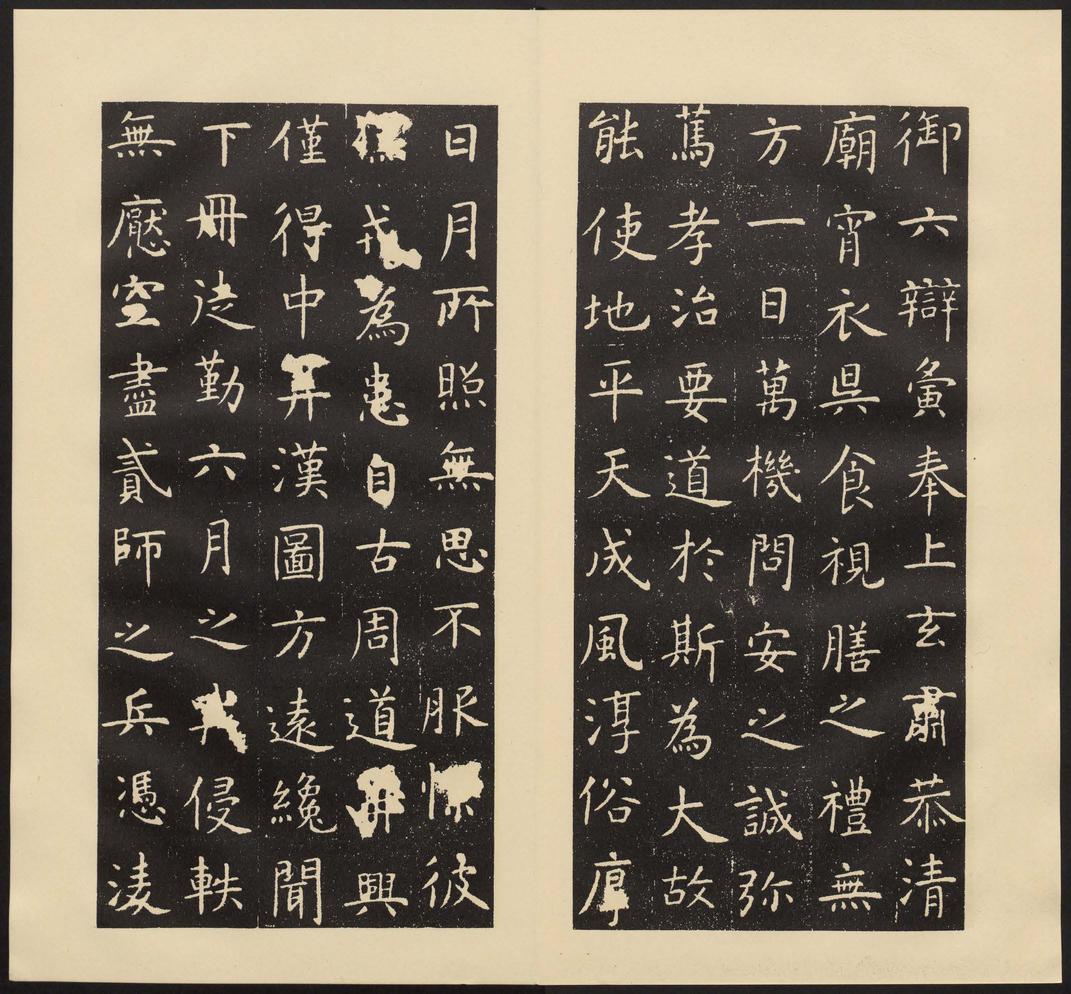 御六辯齊奉上玄肅恭清
廟宵衣昃食視膳之禮無
方一日萬機問安之誠弥
篤孝治要道於斯為大故
能使地平天成風淳俗厚
日月所照無思不服憬彼
戎為患自古周道再興
僅得中筭漢圖方遠纔聞
下冊徒勤六月之戎侵軼
無厭空盡貳師之兵憑淩